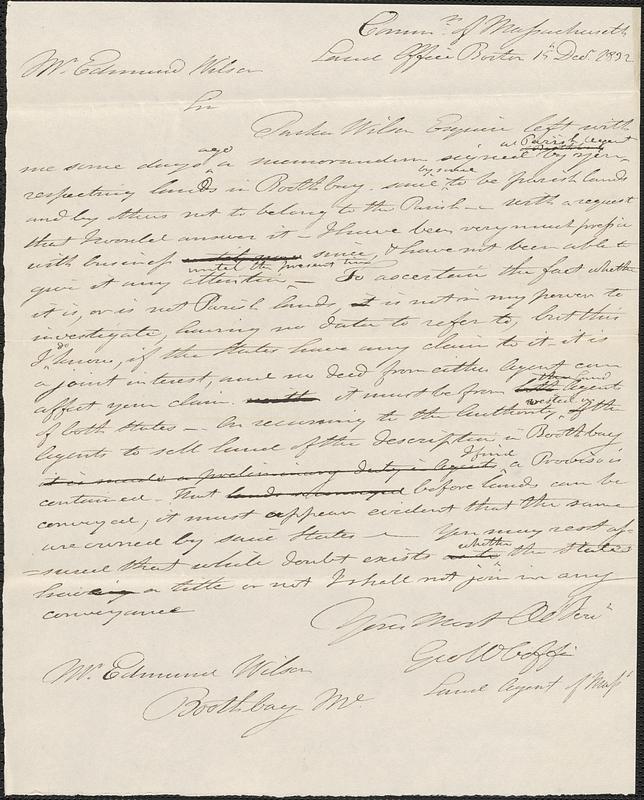 Comm'th of Massachusetts
Land Office Boston 15 Decr. 1832
Mr. Edmund Wilson
Sir
Parker Wilson Esquire left with
me some days ago a memorandum signed by yon as Parish Agent
respecting lands in Boothbay. said by some to be parish lands
and by others not to belong to the Parish with a request
that I would answer it - I have been very much press'd
with business since, & have not been able to
give it any attention until the present time - To ascertain the fact whether
it is, or is not Parish land, it is not in my power to
investigate, having no data to refer to, but this
I do know, if the States have any claim to it, it is
a joint interest, and no deed from either Agent can
affect your claim. it must be from the land Agents
of both States - In recurring to the authority vested in the
Agents to sell land of the description, in Boothbay
it is made a preliminary duty in Agents I find, a Proviso is
contained - that before lands can be
conveyed, it must appear evident that the same
are owned by said States - You may rest as-
sured that while doubt exists whether the States
have a title or not I shall not join in any
conveyance
Your Most Ob Serv't
Geo W Coffin
Land Agent of Mass
Mr. Edmund Wilson
Boothbay Me.